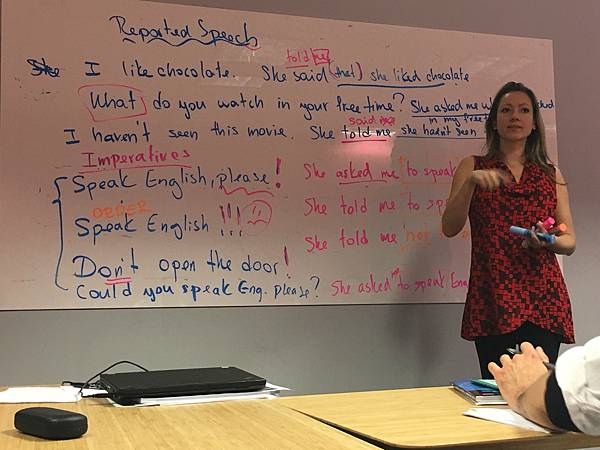 Reported Speech
told me
I like chocolate. She said (that) she liked chocolate
What do you watch in your free time? She asked me
in my free
said me
I haven't seen this movie. She told me she hasn't seen
Imperatives
Speak English, please! She asked me to speak
ORDER
Speak English !!! She told me to
She told me not
Don't open the door!
Could you speak Eng. please? She asked me to speak Eng